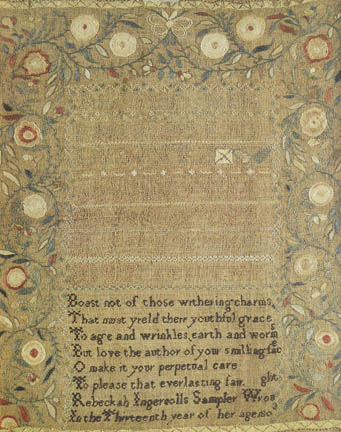 Boast not of those withering charms,
That must yield there youthful grace
To age and wrinkles, earth and worms
But love the author of your smiling fac
O make it your perpetual care
To please that everlasting fair. ght
Rebeckah Ingersolls Sampler Wrou
In the Thirteenth year of her age